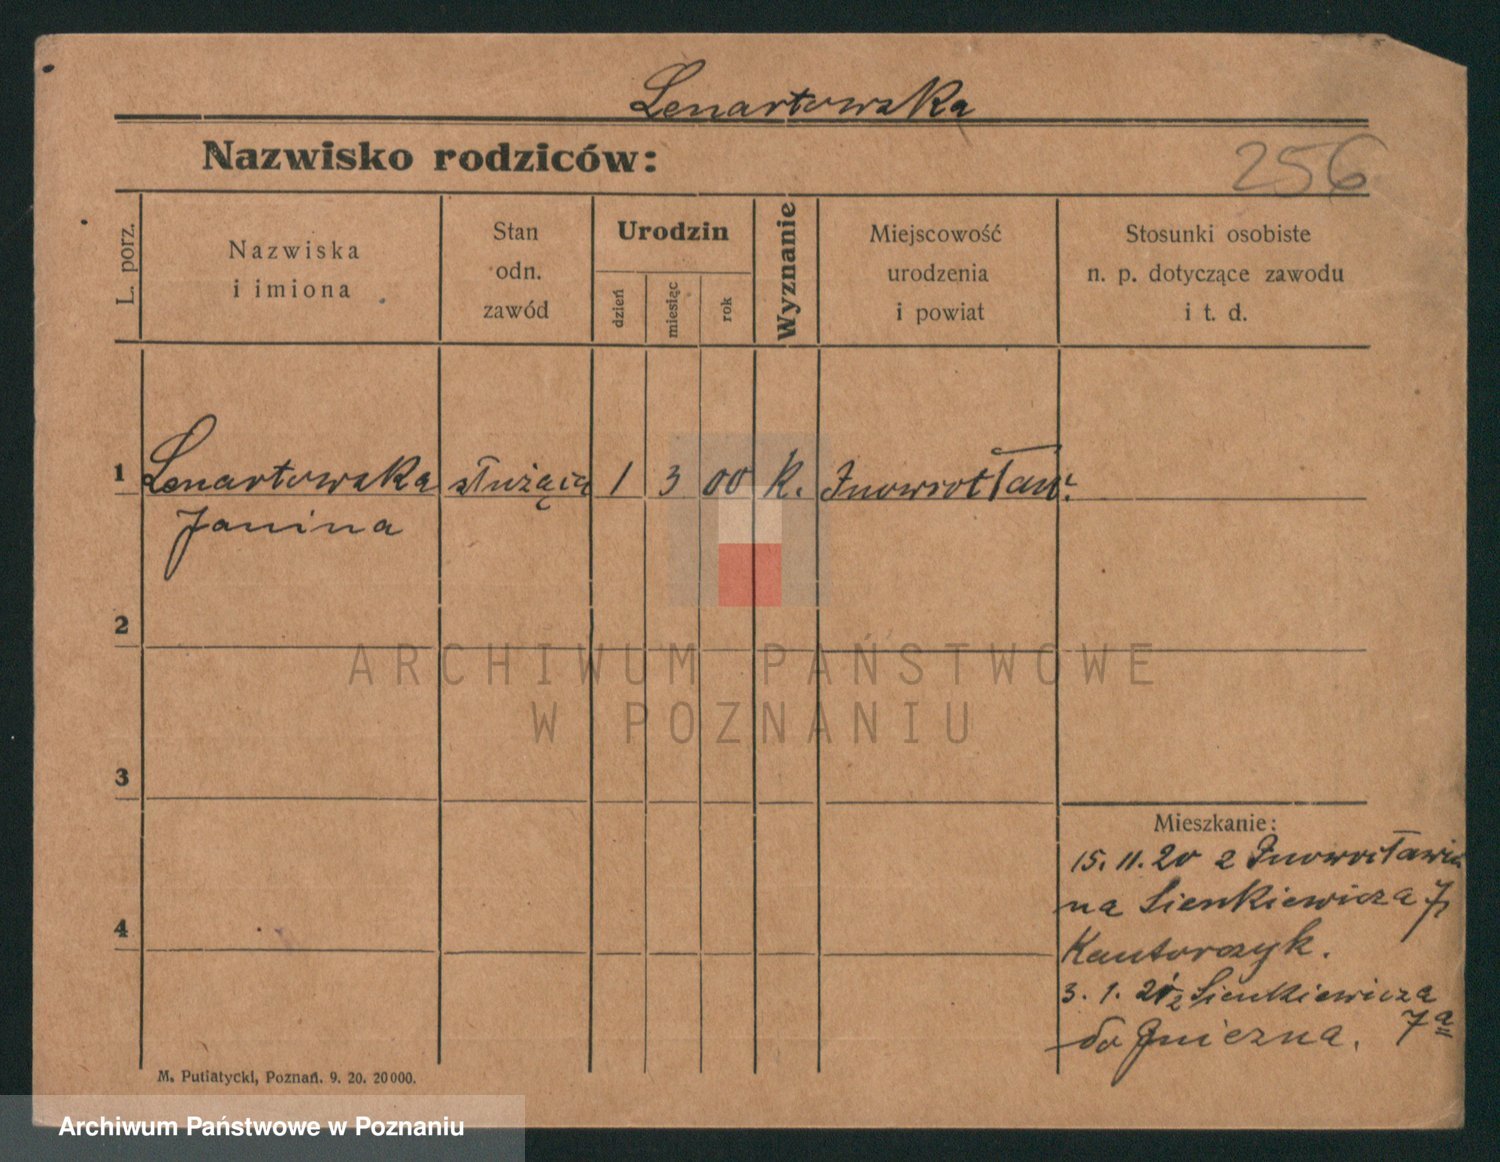 Lenartowska
Nazwisko rodziców:
256
L. porz.
Nazwiska
i imiona
Stan
odn.
zawód
Urodzin
dzień
miesiąc
rok
Wyznanie
Miejscowość
urodzenia
i powiat
Stosunki osobiste
n. p. dotyczące zawodu
i t. d.
1 Lenartowska służąca 1 3 00 K. Inowrocław.
Janina
2
ARCHIWUM PAŃSTWOWE
W POZNANIU
3
Mieszkanie:
15. 11. 20 z Inowrocławia
na Sienkiewicza 7
Kantorczyk.
4
3. 1. 21 z Sienkiewicza
do Gniezna. 7a
M. Putiatycki, Poznań. 9. 20. 20000.
Archiwum Państwowe w Poznaniu